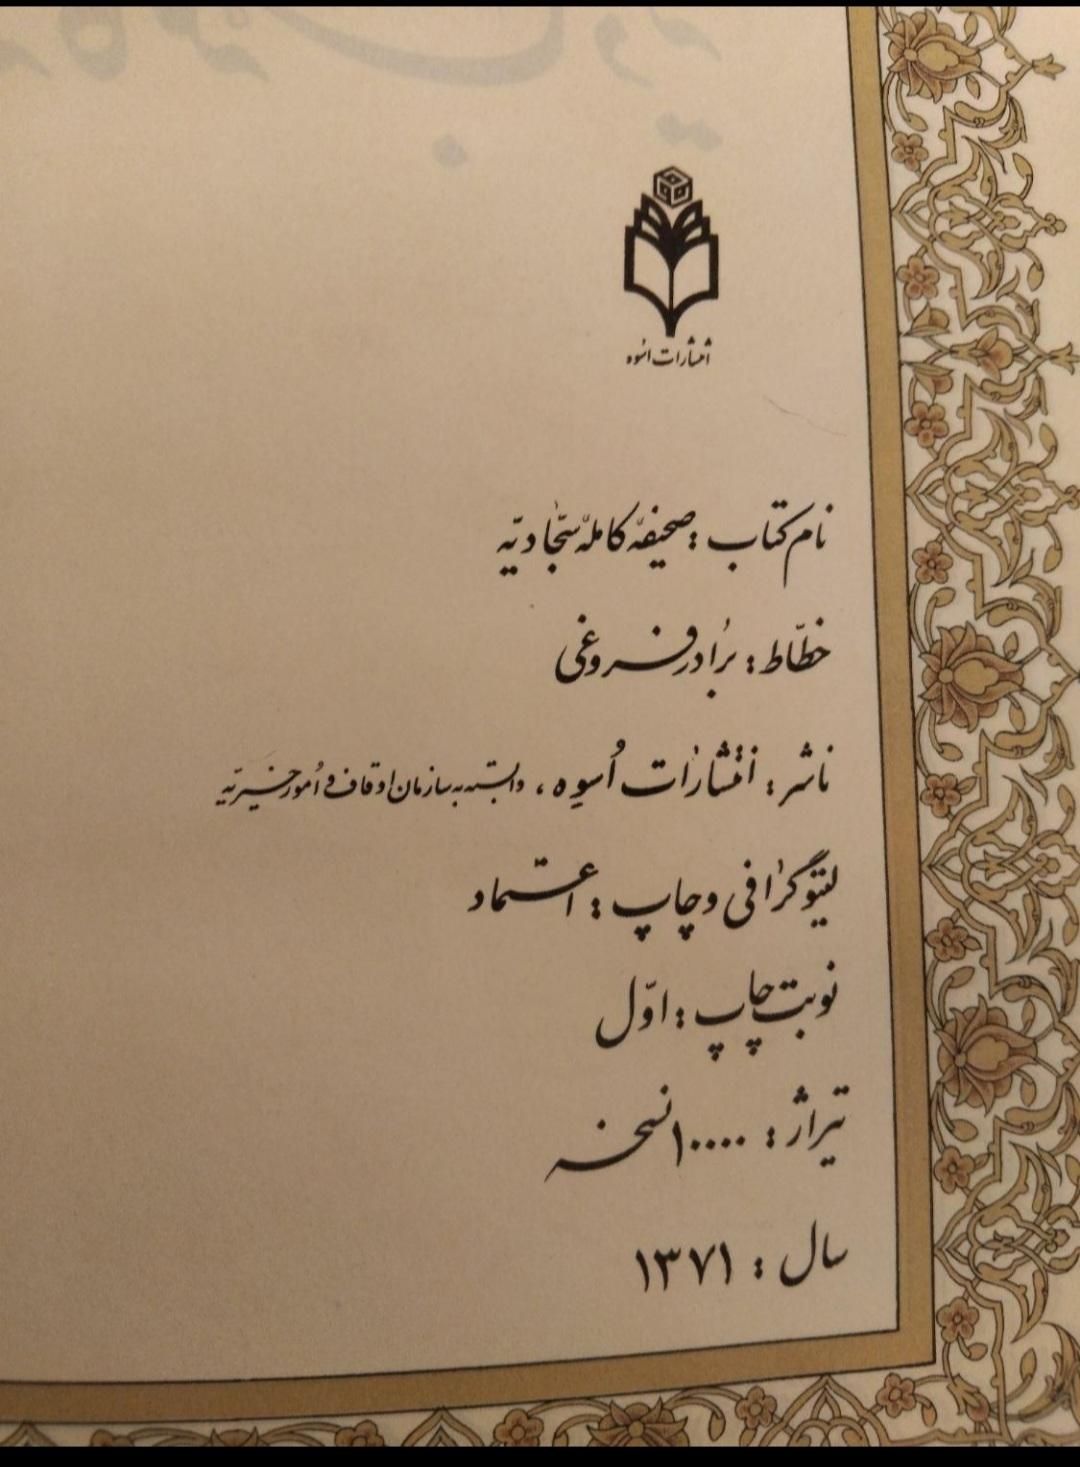 انتشارات اسوه
نام کتاب : صحیفهٔ کاملهٔ سجّادیّه
خطّاط : برادر فروغی
ناشر : انتشارات اُسوه ، وابسته به سازمان اوقاف و اُمور خیریّه
لیتوگرافی و چاپ : اعتماد
نوبت چاپ : اوّل
تیراژ : ۱۰۰۰۰ نسخه
سال : ۱۳۷۱